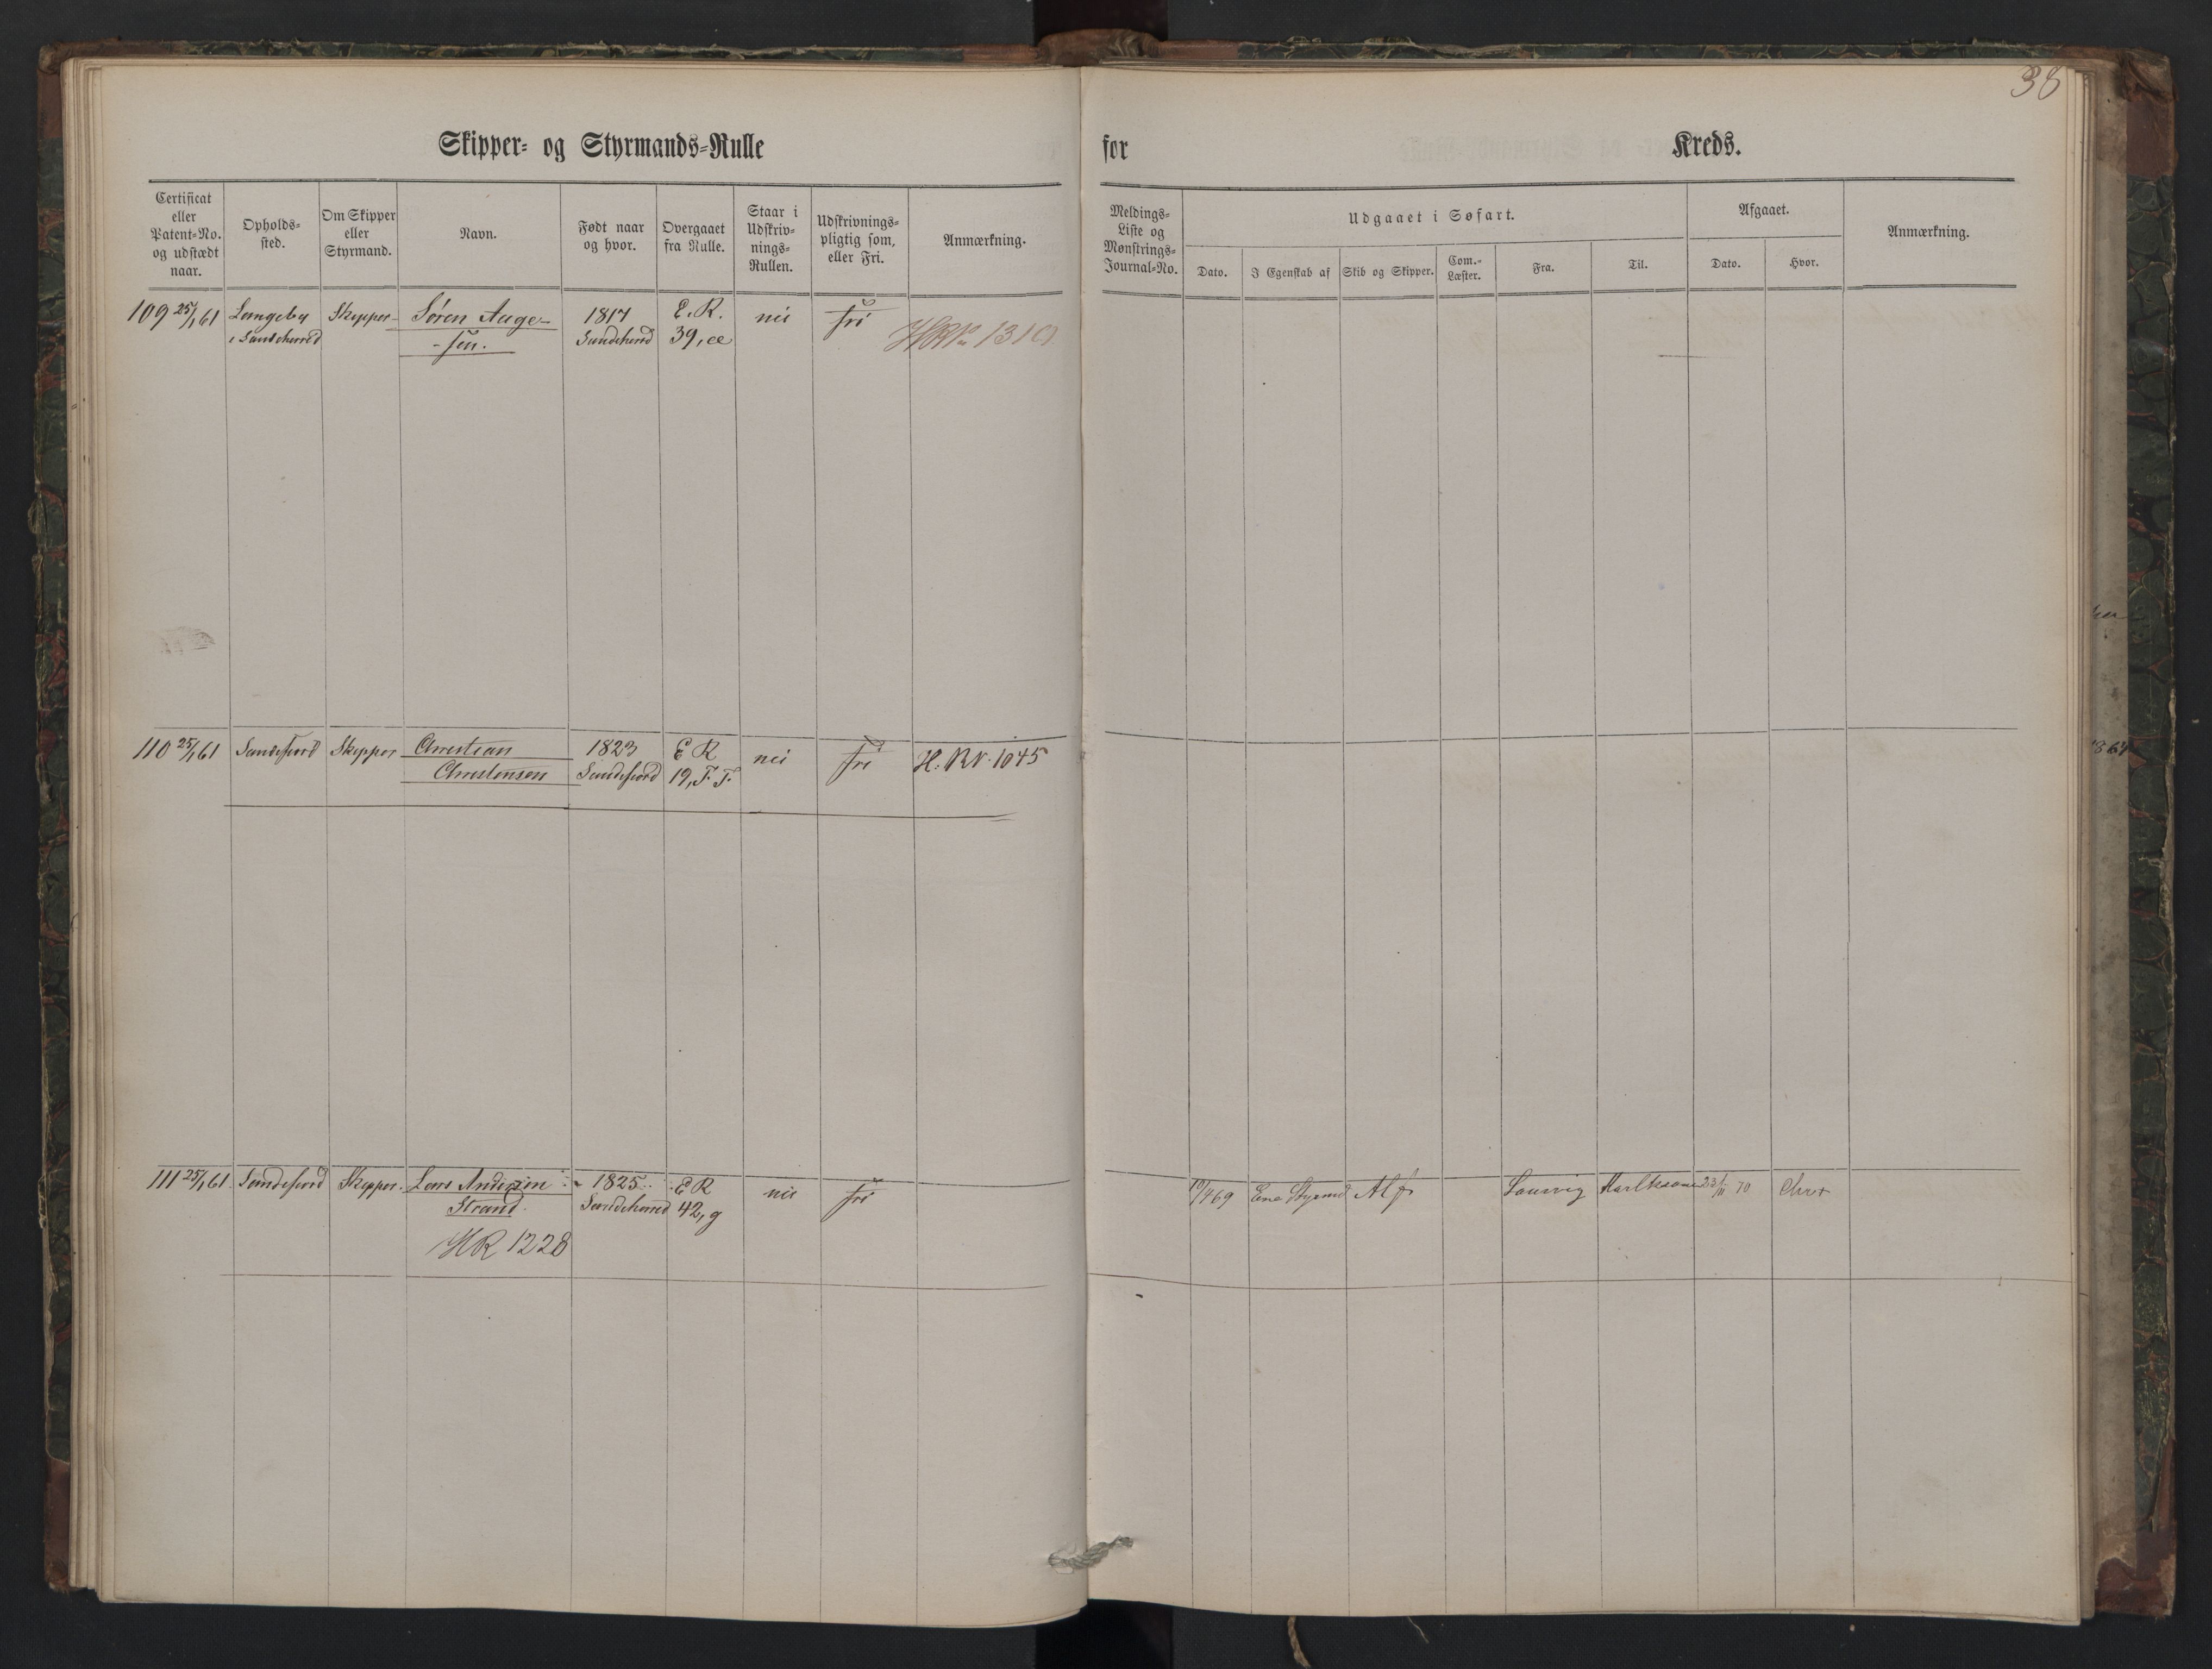 38
Skipper- og Styrmands-Rulle
for Kreds.
Certificat eller Patent-No. og udstædt naar.
Opholds-sted.
Om Skipper eller Styrmand.
Navn.
Født naar og hvor.
Overgaaet fra Rulle.
Staar i Udskriv-nings-Rullen.
Udskrivnings-pligtig som, eller Fri.
Anmærkning.
Meldings-Liste og Mønstrings-Journal-No.
Udgaaet i Søfart.
Dato.
I Egenskab af
Skib og Skipper.
Com.-Læster.
Fra.
Til.
Afgaaet.
Dato.
Hvor.
Anmærkning.
109 25/1 61 Langeby Skipper Søren Aage- 1817 E. R. nei fri
i Sandeherred - sen. Sandeherred 39, 1310
110 25/1 61 Sandefiord Skipper Christian 1823 E R nei fri H. R. N. 1045
Christensen Sandefiord 19, F. F.
111 25/1 61 Sandefiord Skipper Lars Andersen 1825 E R nei fri
Strand Sandeherred 42, g
HR 1228
69 Ene Styrmd Alf Laurvig 70 Chr